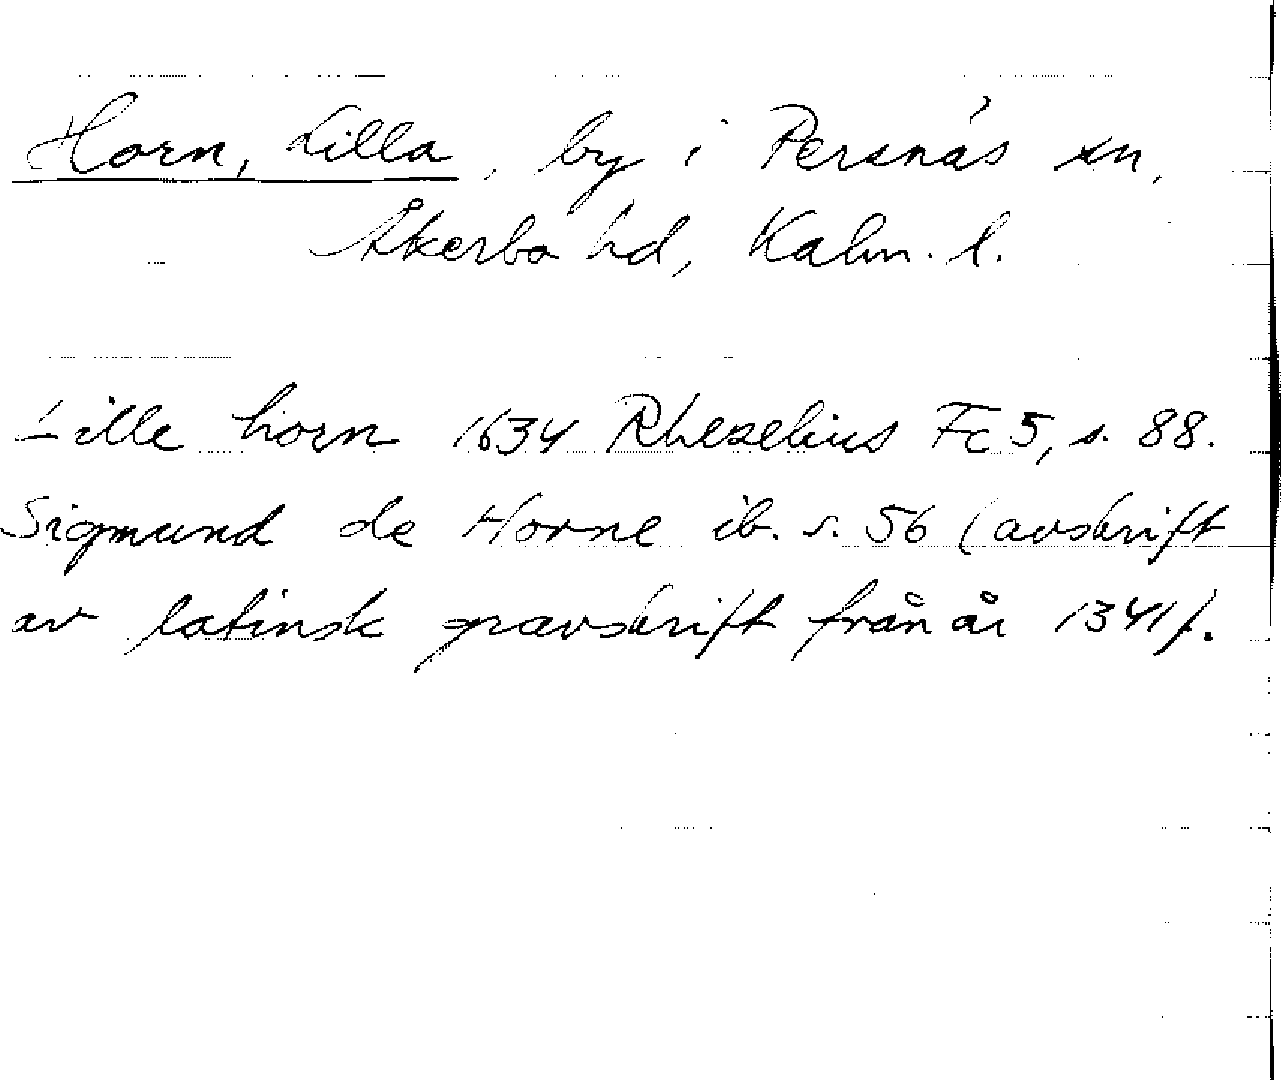 Horn, Lilla, by i Persnäs sn,
Åkerbo hd, Kalm. l.
Lille horn 1634 Rhezelius Fc 5, s. 88.
Sigmund de Horne ib. s. 56 (avskrift
av latinsk gravskrift från år 1341).